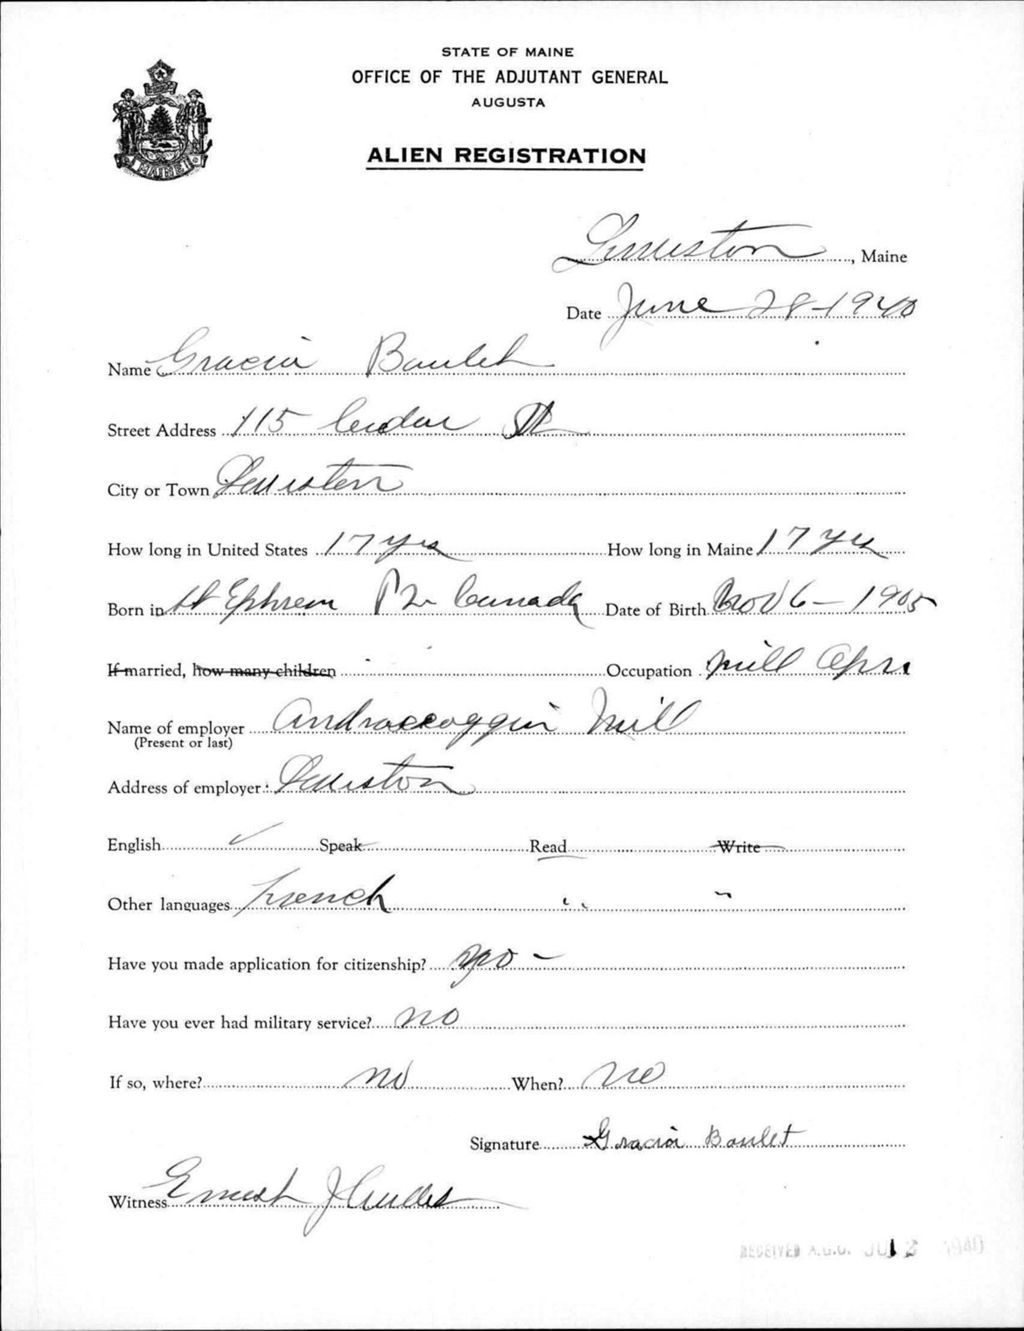 STATE OF MAINE
OFFICE OF THE ADJUTANT GENERAL
AUGUSTA
ALIEN REGISTRATION
Lewiston, Maine
Date June 28-1940
Name Gracia Boulet
Street Address 115 Cedar St
City or Town Lewiston
How long in United States 17 yrs How long in Maine 17 yrs
Born in St Ephrem P Canada Date of Birth Nov 6 - 1905
If married, how many children Occupation Mill Opr
Name of employer Androscoggin Mill
(Present or last)
Address of employer Lewiston
English ✓ Speak Read Write
Other languages French " "
Have you made application for citizenship? no -
Have you ever had military service? no
If so, where? no When? no
Signature Gracia Boulet
Witness Ernest J
RECEIVED A.G.O. JUL 2 1940